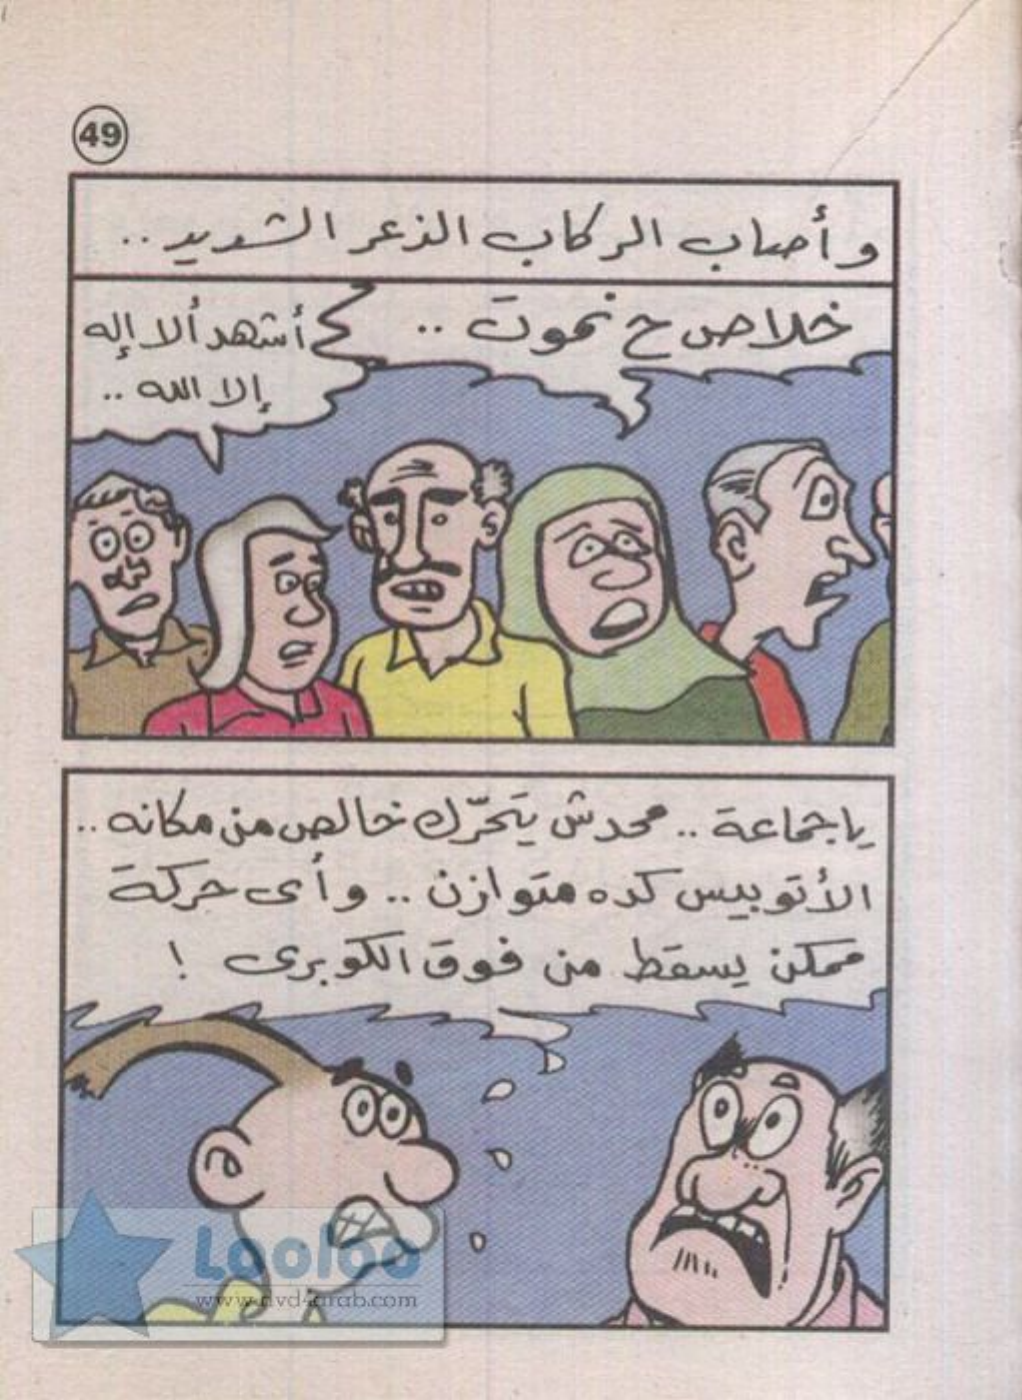 49
وأصاب الركاب الذعر الشديد ..
خلاص ح نموت ..
أشهد ألا إله
إلا الله ..
ياجماعة .. محدش يتحرّك خالص من مكانه ..
الأتوبيس كده متوازن .. وأى حركة
ممكن يسقط من فوق الكوبرى !
Looloo
www.dvd4arab.com